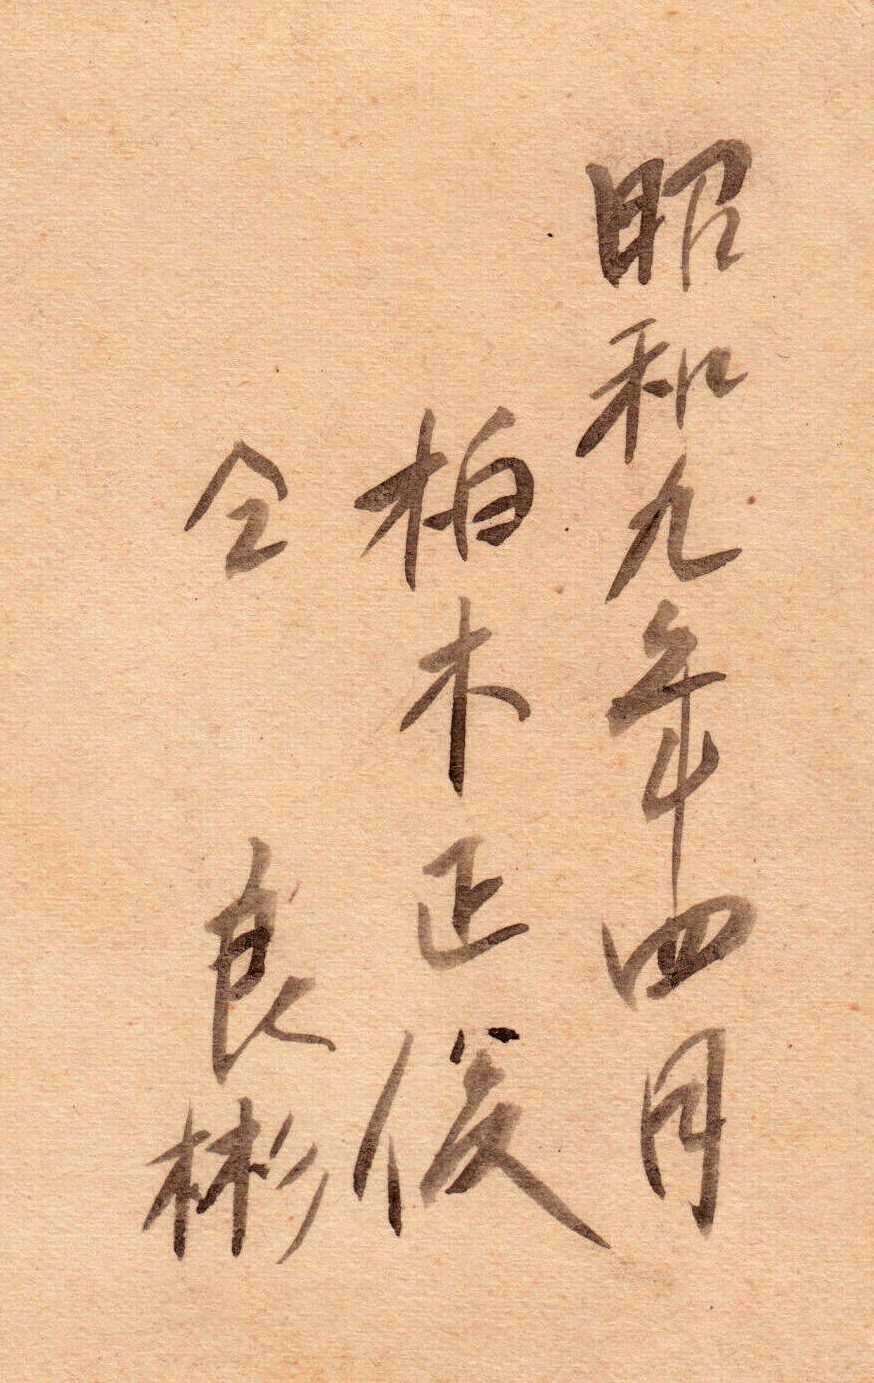 昭和九年四月
柏木正俊
仝 良彬